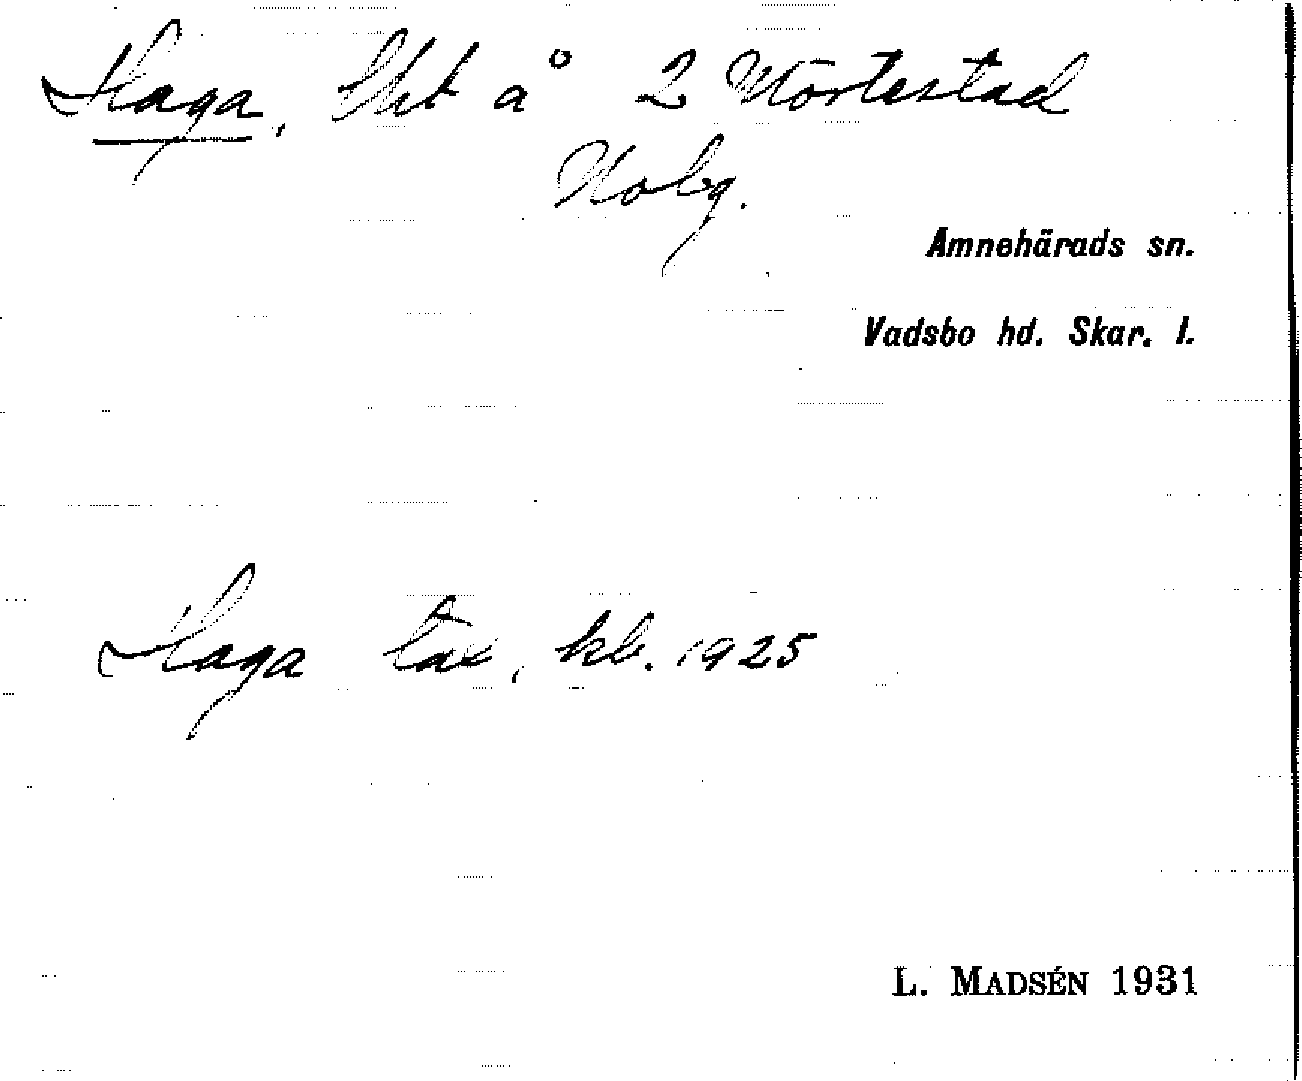 Haga, Tkt å 2 Nortestad
Nolg.
Amnehärads sn.
Vadsbo hd. Skar. l.
Haga tax, kb. 1925
L. MADSÉN 1931